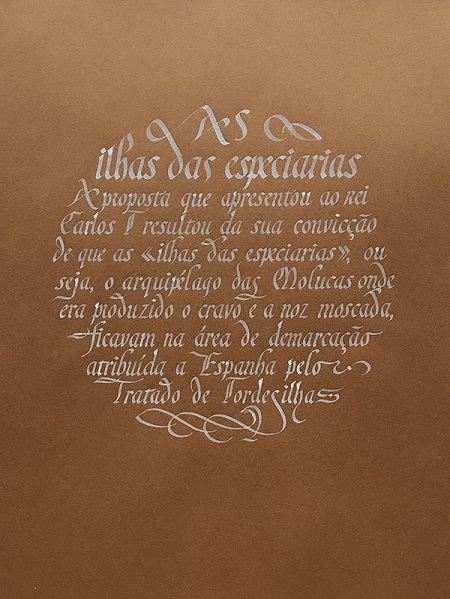 As
ilhas das especiarias
A proposta que apresentou ao Rei
Carlos I resultou da sua convicção
de que as «ilhas das especiarias», ou
seja, o arquipélago das Molucas onde
era produzido o cravo e a noz moscada,
ficavam na área de demarcação
atribuída a Espanha pelo
Tratado de Tordesilhas